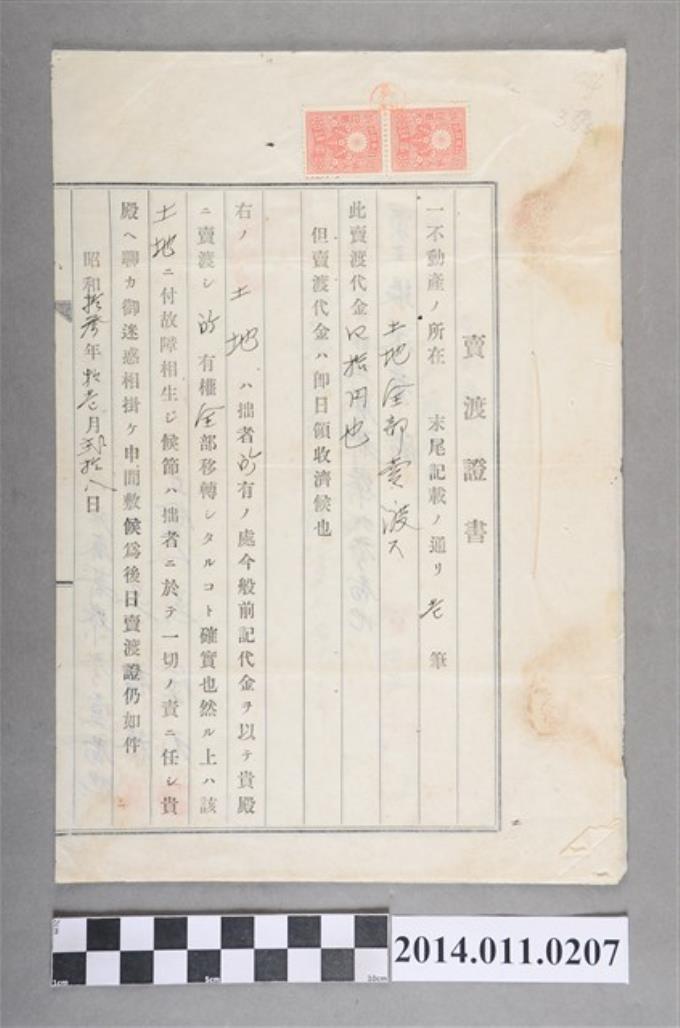 賣渡證書
一不動產ノ所在 末尾記載ノ通リ 壱筆
土地全部賣渡ス
此賣渡代金四拾円也
但賣渡代金ハ卽日領收濟候也
右ノ土地ハ拙者所有ノ處今般前記代金ヲ以テ貴殿
ニ賣渡シ所有權全部移轉シタルコト確實也然ル上ハ該
土地ニ付故障相生シ候節ハ拙者ニ於テ一切ノ責ニ任シ貴
殿ヘ聊カ御迷惑相掛ケ申間敷候爲後日賣渡證仍如件
昭和拾参年拾壱月弐拾八日
2014.011.0207
1cm
5cm
10cm